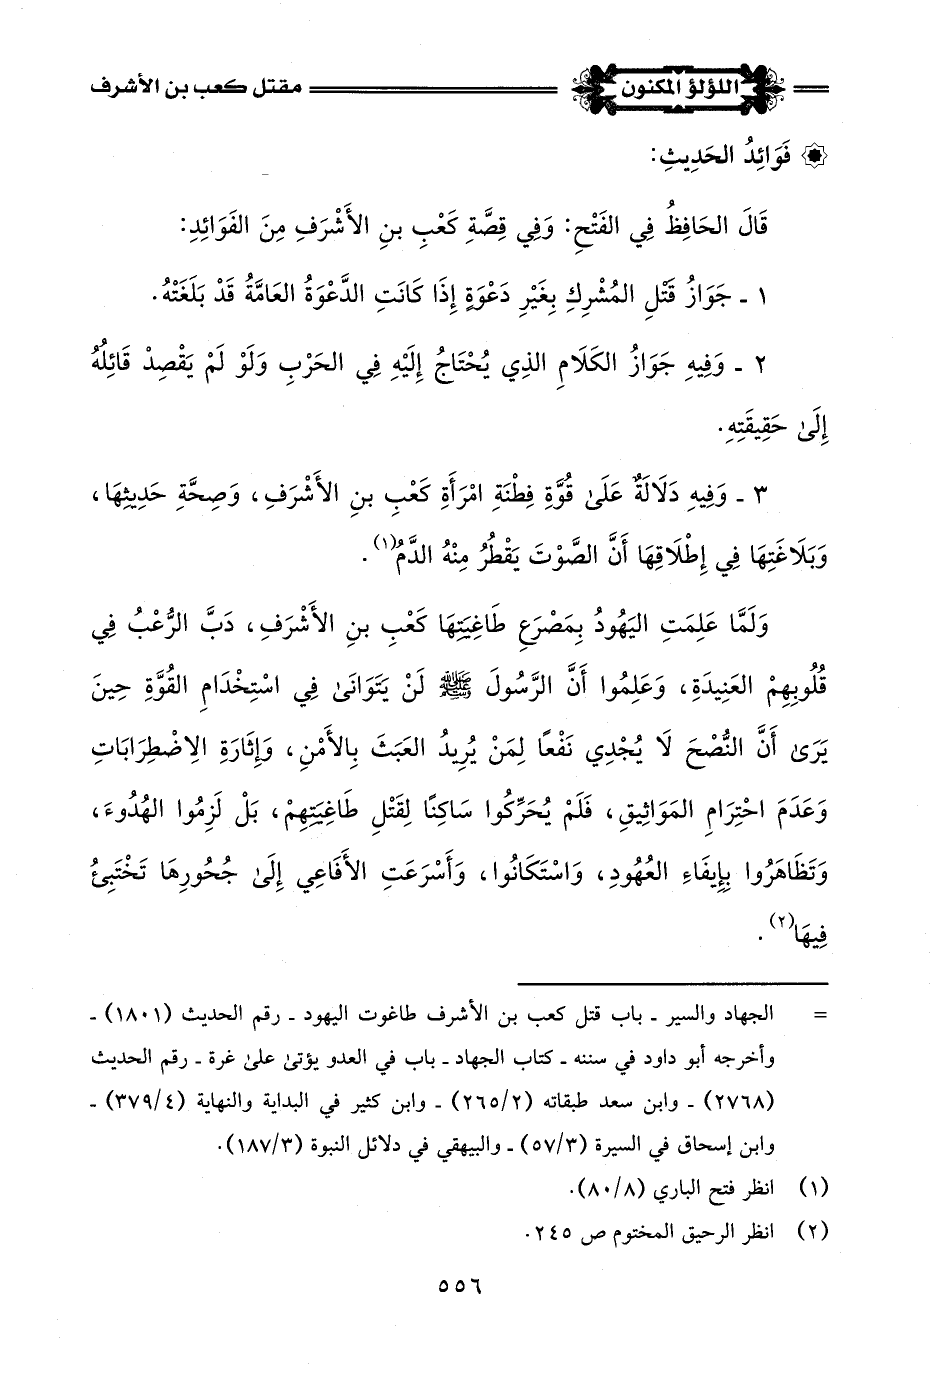 اللؤلؤ المكنون مقتل كعب بن الأشرف
فَوَائِدُ الحَدِيثِ:
قَالَ الحَافِظُ فِي الفَتْحِ: وَفِي قِصَّةِ كَعْبِ بنِ الأَشْرَفِ مِنَ الفَوَائِدِ:
١ ـ جَوَازُ قَتْلِ المُشْرِكِ بِغَيْرِ دَعْوَةٍ إِذَا كَانَتِ الدَّعْوَةُ العَامَّةُ قَدْ بَلَغَتْهُ.
٢ ـ وَفِيهِ جَوَازُ الكَلَامِ الذِي يُحْتَاجُ إِلَيْهِ فِي الحَرْبِ وَلَوْ لَمْ يَقْصِدْ قَائِلُهُ
إِلَىٰ حَقِيقَتِهِ.
٣ ـ وَفِيهِ دَلَالَةٌ عَلَىٰ قُوَّةِ فِطْنَةِ امْرَأَةِ كَعْبِ بنِ الأَشْرَفِ، وَصِحَّةِ حَدِيثِهَا،
وَبَلَاغَتِهَا فِي إِطْلَاقِهَا أَنَّ الصَّوْتَ يَقْطُرُ مِنْهُ الدَّمُ(١).
وَلَمَّا عَلِمَتِ اليَهُودُ بِمَصْرَعِ طَاغِيَتِهَا كَعْبِ بنِ الأَشْرَفِ، دَبَّ الرُّعْبُ فِي
قُلُوبِهِمْ العَنِيدَةِ، وَعَلِمُوا أَنَّ الرَّسُولَ ﷺ لَنْ يَتَوَانَىٰ فِي اسْتِخْدَامِ القُوَّةِ حِينَ
يَرَىٰ أَنَّ النُّصْحَ لَا يُجْدِي نَفْعًا لِمَنْ يُرِيدُ العَبَثَ بِالأَمْنِ، وَإِثَارَةِ الاِضْطِرَابَاتِ
وَعَدَمَ احْتِرَامِ المَوَاثِيقِ، فَلَمْ يُحَرِّكُوا سَاكِنًا لِقَتْلِ طَاغِيَتِهِمْ، بَلْ لَزِمُوا الهُدُوءَ،
وَتَظَاهَرُوا بِإِيفَاءِ العُهُودِ، وَاسْتَكَانُوا، وَأَسْرَعَتِ الأَفَاعِي إِلَىٰ جُحُورِهَا تَخْتَبِئُ
فِيهَا(٢).
= الجهاد والسير ـ باب قتل كعب بن الأشرف طاغوت اليهود ـ رقم الحديث (١٨٠١) ـ
وأخرجه أبو داود في سننه ـ كتاب الجهاد ـ باب في العدو يؤتىٰ علىٰ غرة ـ رقم الحديث
(٢٧٦٨) ـ وابن سعد طبقاته (٢/٢٦٥) ـ وابن كثير في البداية والنهاية (٤/٣٧٩) ـ
وابن إسحاق في السيرة (٣/٥٧) ـ والبيهقي في دلائل النبوة (٣/١٨٧).
(١) انظر فتح الباري (٨/٨٠).
(٢) انظر الرحيق المختوم ص ٢٤٥.
٥٥٦